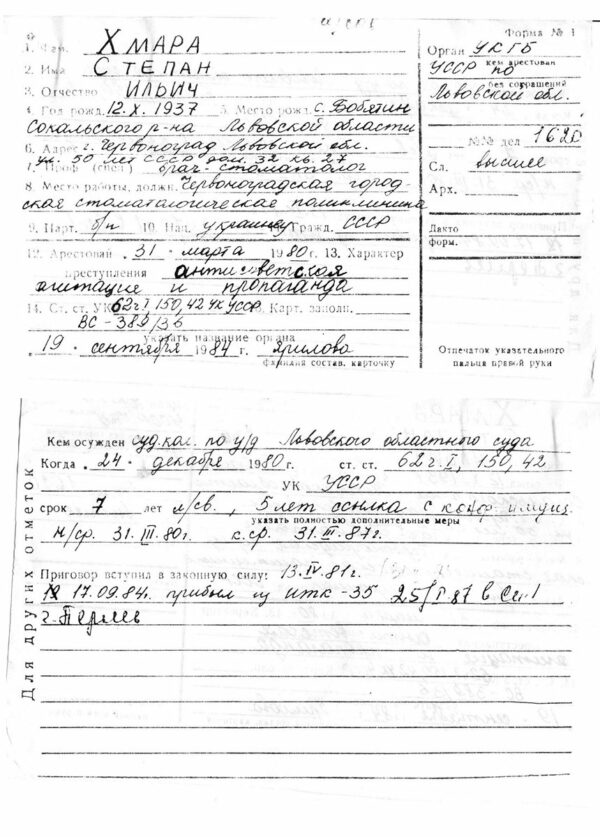 Форма № 1
1. Фам. ХМАРА
2. Имя СТЕПАН
3. Отчество ИЛЬИЧ
4. Год рожд. 12.X.1937 5. Место рожд. с. Бобятин
Сокальского р-на Львовской области
6. Адрес г. Червоноград Львовской обл.
ул. 50 лет СССР дом. 32 кв. 27
7. Проф. (спец.) врач-стоматолог
8. Место работы, должн. Червоноградская город-
ская стоматологическая поликлиника
9. Парт. б/п 10. Нац. украинец Гражд. СССР
12. Арестован "31" марта 1980 г. 13. Характер
преступления антисоветская
агитация и пропаганда
14. Ст. ст. УК 62 ч I, 150, 42 УК УССР Карт. заполн.
ВС-389/36
указать название органа
"19" сентября 1984 г. Ярилова
фамилия состав. карточку
Орган УКГБ
кем арестован
УССР по
без сокращений
Львовской обл.
№№ дел 1620
Сл. высшее
Арх.
Дакто
форм.
Отпечаток указательного
пальца правой руки
Для других отметок
Кем осужден суд. кол. по у/д Львовского областного суда
Когда "24" декабря 1980 г. ст. ст. 62 ч. I, 150, 42
УК УССР
срок 7 лет л/св., 5 лет ссылка с конф. имущ.
указать полностью дополнительные меры
н/ср. 31.III.80г. к.ср. 31.III.87г.
Приговор вступил в законную силу: 13.IV.81г.
17.09.84. прибыл из итк-35 25/I-87 в Си-1
г. Пермь